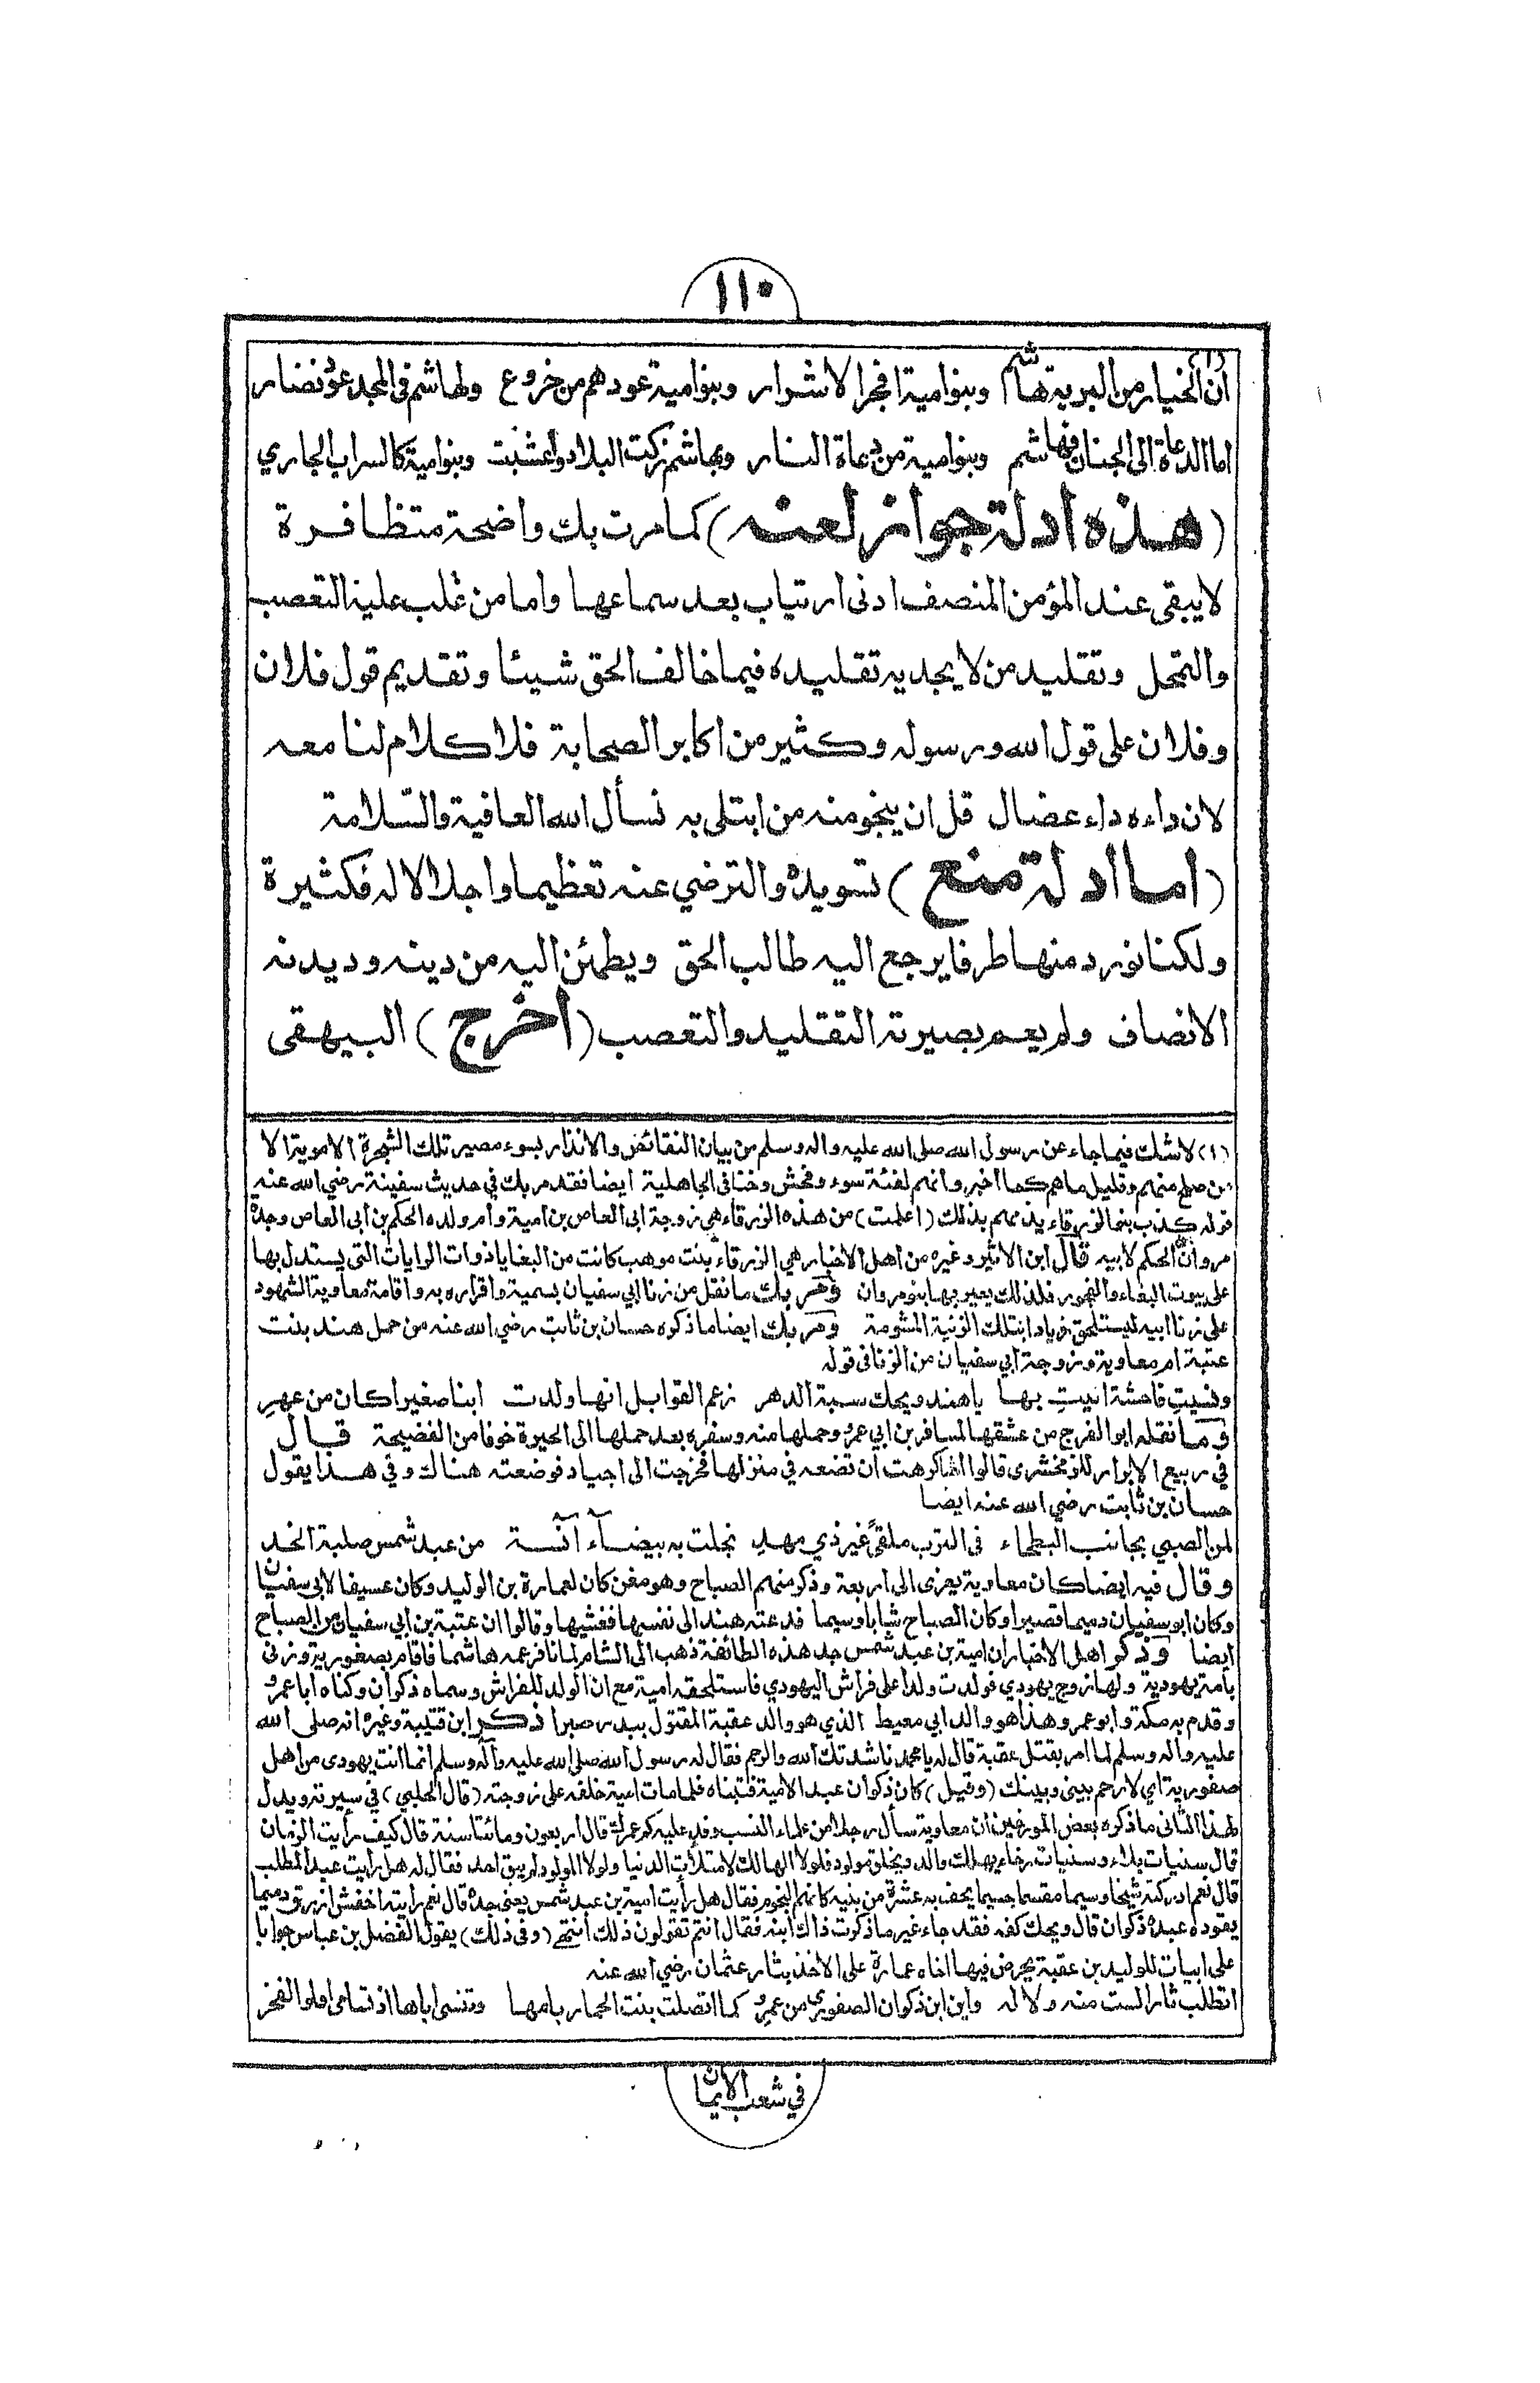 ١١٠
(١) ان الخيار من البرية هاشم وبنو امية افجر الاشرار وبنو امية عودهم من خروع ولهاشم في المجد عود نضار
اما الدعاة الى الجنان فهاشم وبنو امية من دعاة النار وبهاشم زكت البلاد واعشبت وبنو امية كالسراب الجاري
(هذه ادلة جواز لعنه) كما مرت بك واضحة متظافرة
لا يبقى عند المؤمن المنصف ادنى ارتياب بعد سماعها واما من غلب عليه التعصب
والتمحل وتقليد من لا يجديه تقليده فيما خالف الحق شيئا وتقديم قول فلان
وفلان على قول الله ورسوله وكثير من اكابر الصحابة فلا كلام لنا معه
لان داءه داء عضال قل ان ينجو منه من ابتلى به نسأل الله العافية والسّلامة
(اما ادلة منع) تسويده والترضي عنه تعظيما واجلالا له فكثيرة
ولكنا نورد منها طرفا يرجع اليه طالب الحق ويطمئن اليه من دينه وديدنه
الانصاف ولم يعم بصيرته التقليد والتعصب (أخرج) البيهقى
(١) لا شك فيما جاء عن رسول الله صلى الله عليه واله وسلم من بيان النقائص والانذار بسوء مصير تلك الشجرة الاموية الا
من صلح منهم وقليل ما هم كما أخبر وانهم لفئة سوء وفحش وخنا في الجاهلية ايضا فقد مر بك في حديث سفينة رضي الله عنه
قوله كذب بنو الزرقاء يذمهم بذلك (اعلمت) من هذه الزرقاء هي زوجة ابي العاص بن امية وام ولده الحكم بن ابي العاص وجدة
مروان الحكم لابيه قال ابن الاثير وغيره من اهل الاخبار هي الزرقاء بنت موهب كانت من البغايا ذوات الرايات التي يستدل بها
على بيوت البغاء والفجور فلذلك يعير بها بنو مروان ومر بك ما نقل من زنا ابي سفيان بسمية واقراره به واقامة معاوية الشهود
على زنا ابيه ليستلحق زيادا بتلك الزنية المشومة ومر بك ايضا ما ذكره حسان بن ثابت رضي الله عنه من حمل هند بنت
عتبة ام معاوية وزوجة ابي سفيان من الزنا في قوله
ونسيتِ فاحشة اتيتِ بها يا هند ويحك سبة الدهر زعم القوابل انها ولدت ابنا صغيرا كان من عهرِ
وما نقله ابو الفرج من عشقها لمسافر بن ابي عمرو وحملها منه وسفره بعد حملها الى الحيرة خوفا من الفضيحة قال
في ربيع الابرار للزمخشرى قالوا انها كرهت ان تضعه في منزلها فخرجت الى اجياد فوضعته هناك وفي هذا يقول
حسان بن ثابت رضي الله عنه ايضا
لمن الصبي بجانب البطحاء في الترب ملقىً غير ذي مهدِ نجلت به بيضآء آنسة من عبد شمس صلبة الخد
وقال فيه ايضا كان معاوية يعزى الى اربعة وذكر منهم الصباح وهو مغن كان لعمارة بن الوليد وكان عسيفا لابي سفيان
وكان ابو سفيان دميما قصيرا وكان الصباح شابا وسيما فدعته هند الى نفسها فغشيها وقالوا ان عتبة بن ابي سفيان من الصباح
ايضا وذكر اهل الاخبار ان امية بن عبد شمس جد هذه الطائفة ذهب الى الشام لما نافر عمه هاشما فاقام بصفورية وزنى
بامة يهودية ولها زوج يهودي فولدت ولدا على فراش اليهودي فاستلحقه امية مع ان الولد للفراش وسماه ذكوان وكناه ابا عمرو
وقدم به مكة وابو عمرو هذا هو والد ابي معيط الذي هو والد عقبة المقتول ببدر صبرا ذكر ابن قتيبة وغيره انه صلى الله
عليه واله وسلم لما امر بقتل عقبة قال له يا محمد ناشدتك الله والرحم فقال له رسول الله صلى الله عليه وآله وسلم انما انت يهودى من اهل
صفورية اي لا رحم بينى وبينك (وقيل) كان ذكوان عبدا لامية فتبناه فلما مات امية خلفه على زوجته (قال الحلبي) في سيرته ويدل
لهذا الثانى ما ذكره بعض المؤرخين ان معاوية سأل رجلا من علماء النسب وفد عليه كم عمرك قال اربعون ومائتا سنة قال كيف رأيت الزمان
قال سنيات بلاء وسنيات رخاء يهلك والد ويخلق مولود فلولا الهالك لامتلأت الدنيا ولولا المولود لم يبق احد فقال له هل رأيت عبد المطلب
قال نعم ادركته شيخا وسيما مقسما جسيما يحف به عشرة من بنيه كانهم النجوم فقال هل رأيت امية بن عبد شمس يعنى جده قال نعم رايته اخفش ازرق دميما
يقوده عبده ذكوان قال ويحك كفه فقد جاء غير ما ذكرت ذاك ابنه فقال انتم تقولون ذلك انتهى (وفي ذلك) يقول الفضل بن عباس جوابا
على ابيات للوليد بن عقبة يحرض فيها اخاه عمارة على الاخذ بثار عثمان رضي الله عنه
اتطلب ثارا لست منه ولا له واين ابن ذكوان الصفوري من عمرو كما اتصلت بنت الحمار بامها وتنسى اباها اذ تسامى اولو الفخر
في شعب الايمان